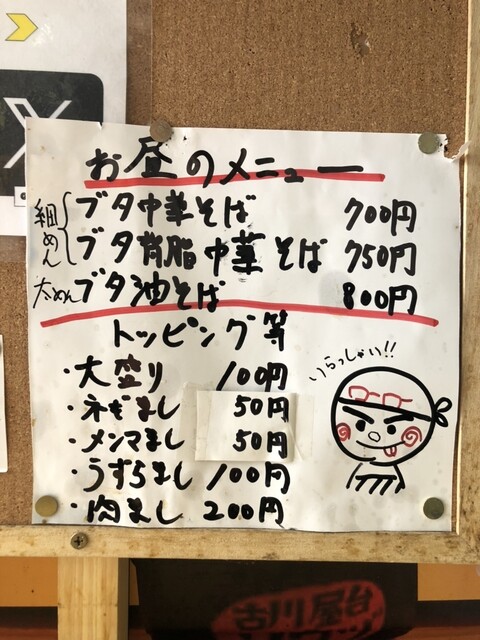 X
お昼のメニュー
細めん
ブタ中華そば 700円
ブタ背脂中華そば 750円
太めん ブタ油そば 800円
トッピング等
・大盛り 100円
・ネギまし 50円
・メンマまし 50円
・うずらまし 100円
・肉まし 200円
いらっしゃい!!
古川屋台